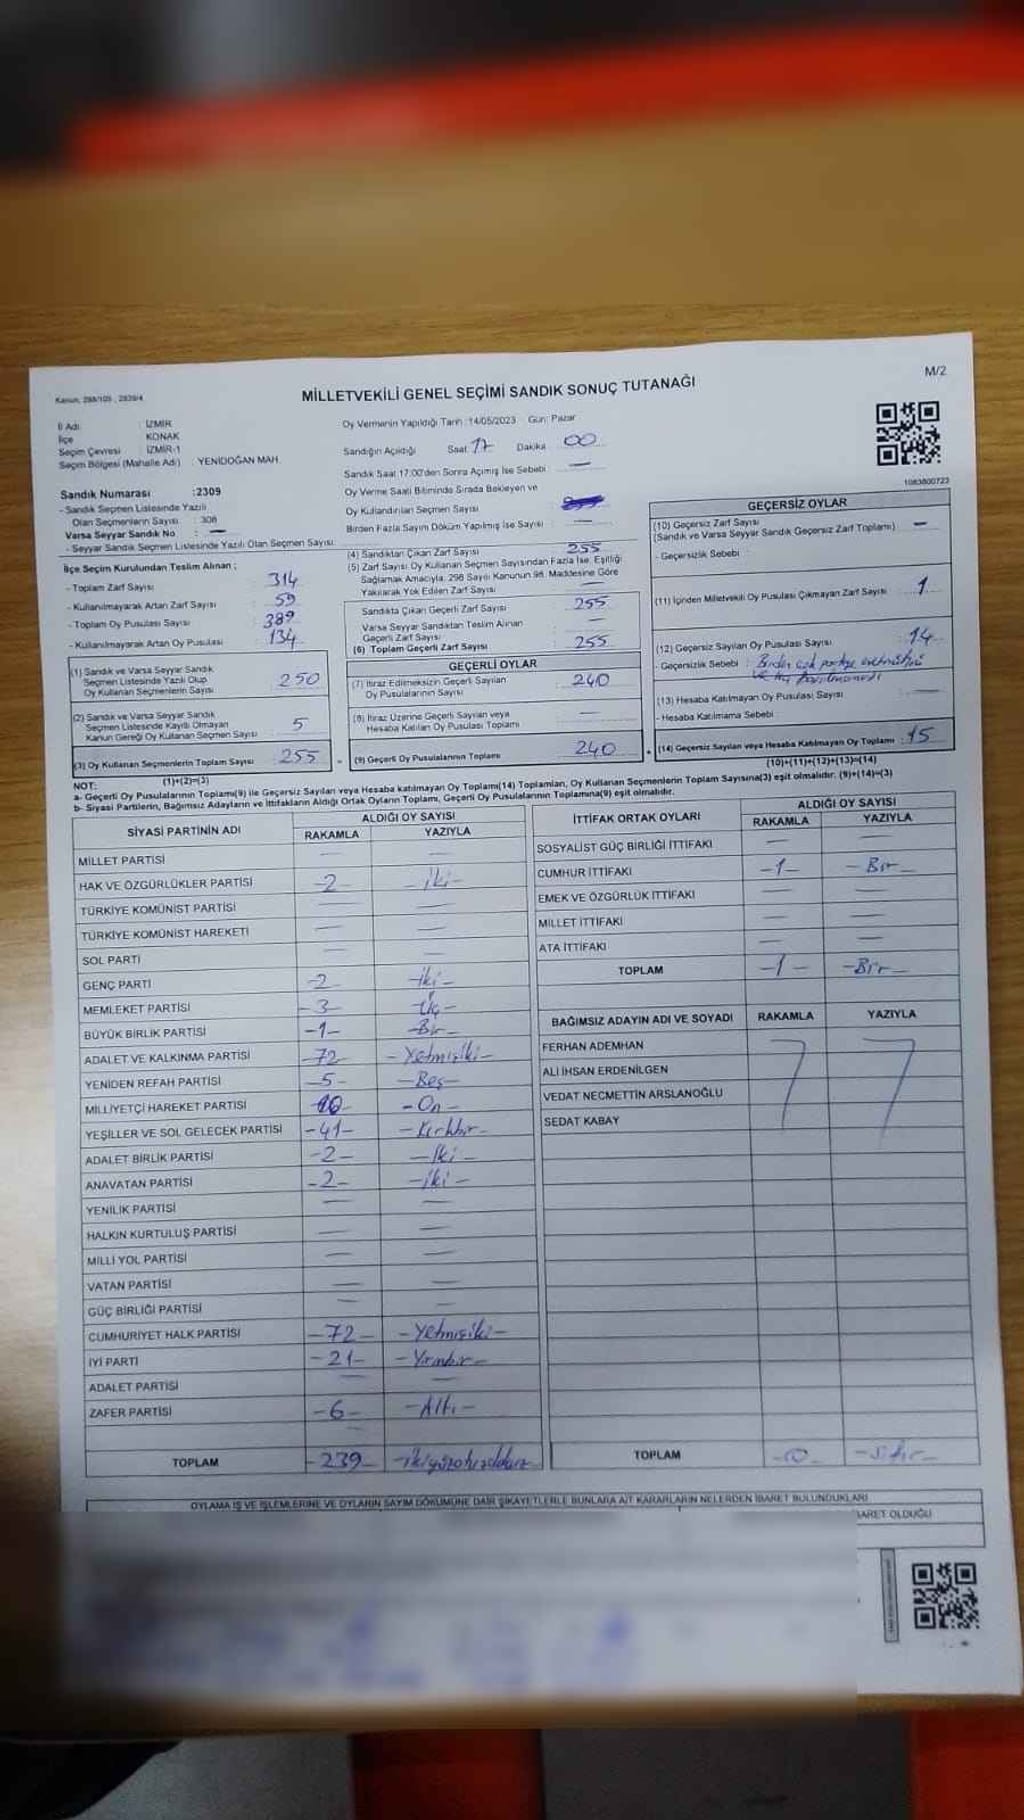 M/2
Kanun: 298/105 , 2839/4
MİLLETVEKİLİ GENEL SEÇİMİ SANDIK SONUÇ TUTANAĞI
İl Adı : İZMİR
İlçe : KONAK
Seçim Çevresi : İZMİR-1
Seçim Bölgesi (Mahalle Adı) : YENİDOĞAN MAH.
Sandık Numarası :2309
- Sandık Seçmen Listesinde Yazılı
Olan Seçmenlerin Sayısı : 308
Varsa Seyyar Sandık No : —
- Seyyar Sandık Seçmen Listesinde Yazılı Olan Seçmen Sayısı:
Oy Vermenin Yapıldığı Tarih :14/05/2023 Gün: Pazar
Sandığın Açıldığı Saat 17 Dakika 00
Sandık Saat 17:00'den Sonra Açılmış İse Sebebi : —
Oy Verme Saati Bitiminde Sırada Bekleyen ve
Oy Kullandırılan Seçmen Sayısı :
Birden Fazla Sayım Döküm Yapılmış İse Sayısı : —
1083800723
İlçe Seçim Kurulundan Teslim Alınan ;
- Toplam Zarf Sayısı : 314
- Kullanılmayarak Artan Zarf Sayısı : 59
- Toplam Oy Pusulası Sayısı : 389
- Kullanılmayarak Artan Oy Pusulası : 134
(1) Sandık ve Varsa Seyyar Sandık
Seçmen Listesinde Yazılı Olup
Oy Kullanan Seçmenlerin Sayısı : 250
(2) Sandık ve Varsa Seyyar Sandık
Seçmen Listesinde Kayıtlı Olmayan
Kanun Gereği Oy Kullanan Seçmen Sayısı : 5
(3) Oy Kullanan Seçmenlerin Toplam Sayısı : 255
(1)+(2)=(3)
(4) Sandıktan Çıkan Zarf Sayısı : 255
(5) Zarf Sayısı Oy Kullanan Seçmen Sayısından Fazla İse, Eşitliği
Sağlamak Amacıyla, 298 Sayılı Kanunun 98. Maddesine Göre
Yakılarak Yok Edilen Zarf Sayısı : —
Sandıkta Çıkan Geçerli Zarf Sayısı : 255
Varsa Seyyar Sandıktan Teslim Alınan
Geçerli Zarf Sayısı : —
(6) Toplam Geçerli Zarf Sayısı : 255
GEÇERLİ OYLAR
(7) İtiraz Edilmeksizin Geçerli Sayılan
Oy Pusulalarının Sayısı : 240
(8) İtiraz Üzerine Geçerli Sayılan veya
Hesaba Katılan Oy Pusulası Toplamı : —
(9) Geçerli Oy Pusulalarının Toplamı : 240
GEÇERSİZ OYLAR
(10) Geçersiz Zarf Sayısı
(Sandık ve Varsa Seyyar Sandık Geçersiz Zarf Toplamı) : —
- Geçersizlik Sebebi :
(11) İçinden Milletvekili Oy Pusulası Çıkmayan Zarf Sayısı : 1
(12) Geçersiz Sayılan Oy Pusulası Sayısı : 14
- Geçersizlik Sebebi : Birden çok partiye
(13) Hesaba Katılmayan Oy Pusulası Sayısı : —
- Hesaba Katılmama Sebebi :
(14) Geçersiz Sayılan veya Hesaba Katılmayan Oy Toplamı : 15
(10)+(11)+(12)+(13)=(14)
NOT:
a- Geçerli Oy Pusulalarının Toplamı(9) ile Geçersiz Sayılan veya Hesaba katılmayan Oy Toplamı(14) Toplamları, Oy Kullanan Seçmenlerin Toplam Sayısına(3) eşit olmalıdır. (9)+(14)=(3)
b- Siyasi Partilerin, Bağımsız Adayların ve İttifakların Aldığı Ortak Oyların Toplamı, Geçerli Oy Pusulalarının Toplamına(9) eşit olmalıdır.
SİYASİ PARTİNİN ADI ALDIĞI OY SAYISI
RAKAMLA YAZIYLA
MİLLET PARTİSİ — —
HAK VE ÖZGÜRLÜKLER PARTİSİ -2- -iki-
TÜRKİYE KOMÜNİST PARTİSİ — —
TÜRKİYE KOMÜNİST HAREKETİ — —
SOL PARTİ — —
GENÇ PARTİ -2- -iki-
MEMLEKET PARTİSİ -3- -Üç-
BÜYÜK BİRLİK PARTİSİ -1- -Bir-
ADALET VE KALKINMA PARTİSİ -72- -Yetmişiki-
YENİDEN REFAH PARTİSİ -5- -Beş-
MİLLİYETÇİ HAREKET PARTİSİ 10- -On-
YEŞİLLER VE SOL GELECEK PARTİSİ -41- -Kırkbir-
ADALET BİRLİK PARTİSİ -2- -İki-
ANAVATAN PARTİSİ -2- -iki-
YENİLİK PARTİSİ — —
HALKIN KURTULUŞ PARTİSİ — —
MİLLİ YOL PARTİSİ — —
VATAN PARTİSİ — —
GÜÇ BİRLİĞİ PARTİSİ — —
CUMHURİYET HALK PARTİSİ -72- -Yetmişiki-
İYİ PARTİ -21- -Yirmibir-
ADALET PARTİSİ — —
ZAFER PARTİSİ -6- -Altı-
TOPLAM -239- -ikiyüzotuzdokuz-
İTTİFAK ORTAK OYLARI ALDIĞI OY SAYISI
RAKAMLA YAZIYLA
SOSYALİST GÜÇ BİRLİĞİ İTTİFAKI — —
CUMHUR İTTİFAKI -1- -Bir-
EMEK VE ÖZGÜRLÜK İTTİFAKI — —
MİLLET İTTİFAKI — —
ATA İTTİFAKI — —
TOPLAM -1- -Bir-
BAĞIMSIZ ADAYIN ADI VE SOYADI RAKAMLA YAZIYLA
FERHAN ADEMHAN
ALİ İHSAN ERDENİLGEN
VEDAT NECMETTİN ARSLANOĞLU
SEDAT KABAY
TOPLAM -0- -Sıfır-
OYLAMA İŞ VE İŞLEMLERİNE VE OYLARIN SAYIM DÖKÜMÜNE DAİR ŞİKAYETLERLE BUNLARA AİT KARARLARIN NELERDEN İBARET BULUNDUKLARI
BARET OLDUĞU